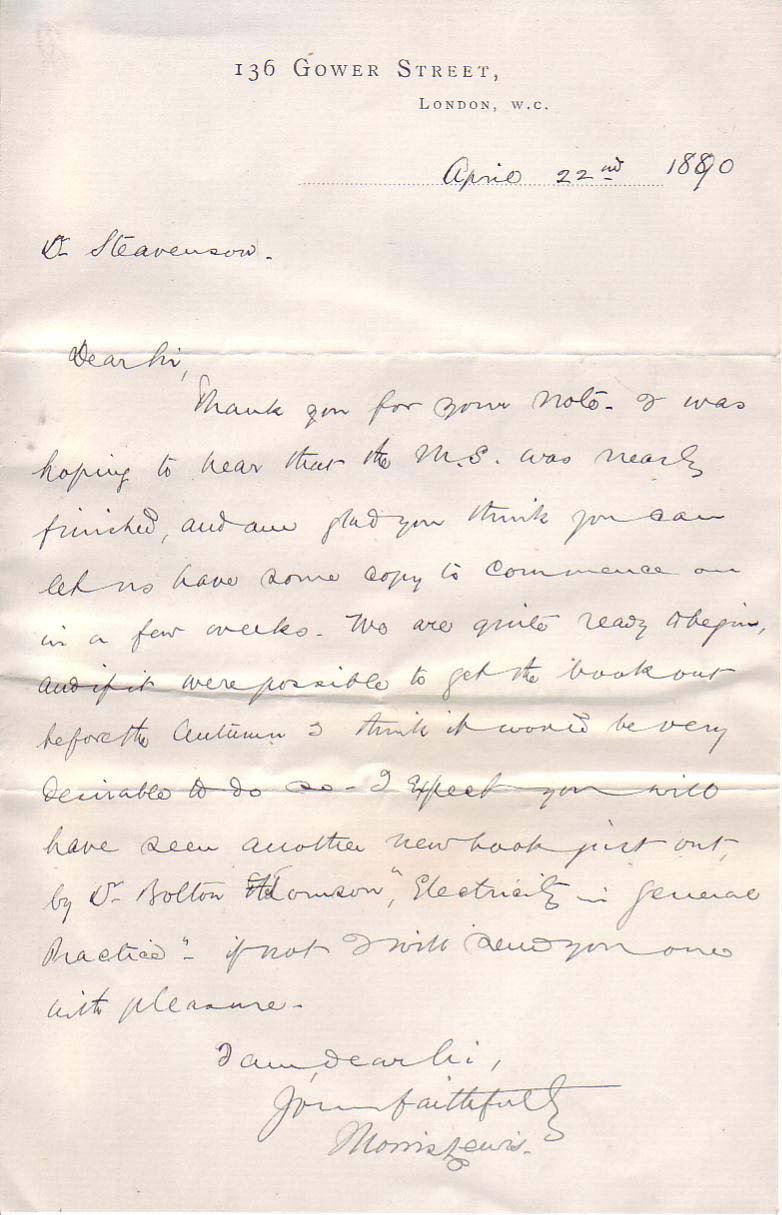 136 GOWER STREET,
LONDON, W.C.
April 22nd 1890
Dr Steavenson.
Dear Sir,
Thank you for your note. I was
hoping to hear that the M.S. was nearly
finished, and am glad you think you can
let us have some copy to commence on
in a few weeks. We are quite ready to begin,
and if it were possible to get the book out
before the Autumn I think it would be very
desirable to do so - I expect you will
have seen another new book just out,
by Dr Bolton Thomson, "Electricity in General
Practice" - if not I will send you one
with pleasure.
I am, dear Sir,
Yours faithfully
Morris Lewis.